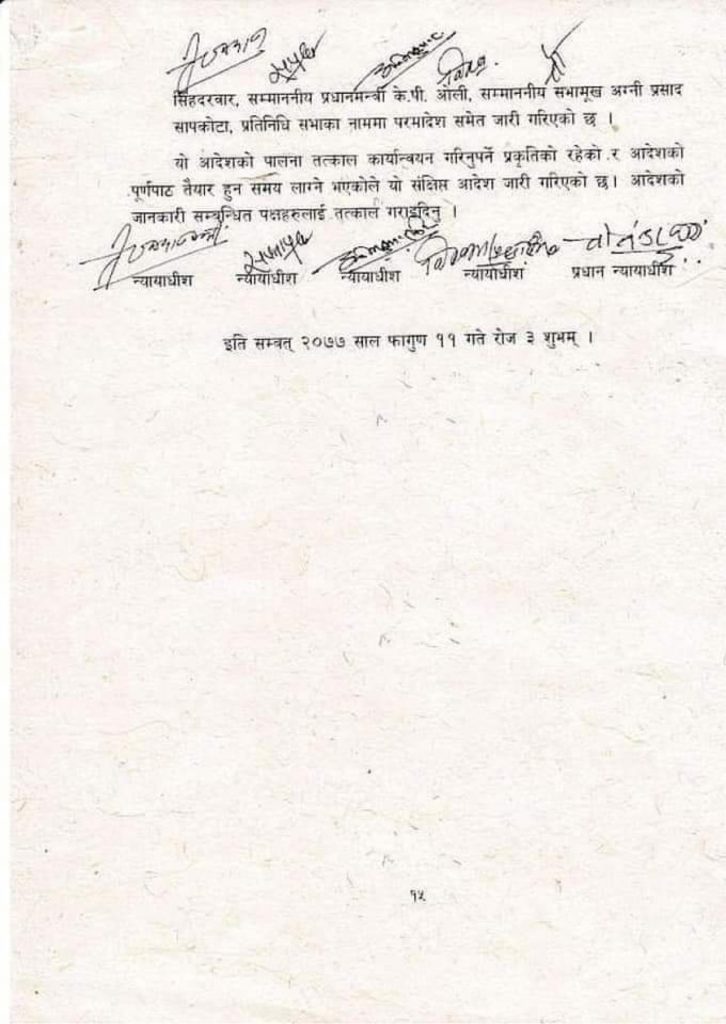 सिंहदरवार, सम्माननीय प्रधानमन्त्री के.पी. ओली, सम्माननीय सभामूख अग्नी प्रसाद
सापकोटा, प्रतिनिधि सभाका नाममा परमादेश समेत जारी गरिएको छ ।
यो आदेशको पालना तत्काल कार्यान्वयन गरिनुपर्ने प्रकृतिको रहेको र आदेशको
पूर्णपाट तैयार हुन समय लाग्ने भएकोले यो संक्षिप्त आदेश जारी गरिएको छ। आदेशको
जानकारी सम्बन्धित पक्षहरुलाई तत्काल गराइदिनु ।
न्यायाधीश न्यायाधीश न्यायाधीश न्यायाधीश प्रधान न्यायाधीश
इति सम्वत् २०७७ साल फागुण ११ गते रोज ३ शुभम् ।
१५